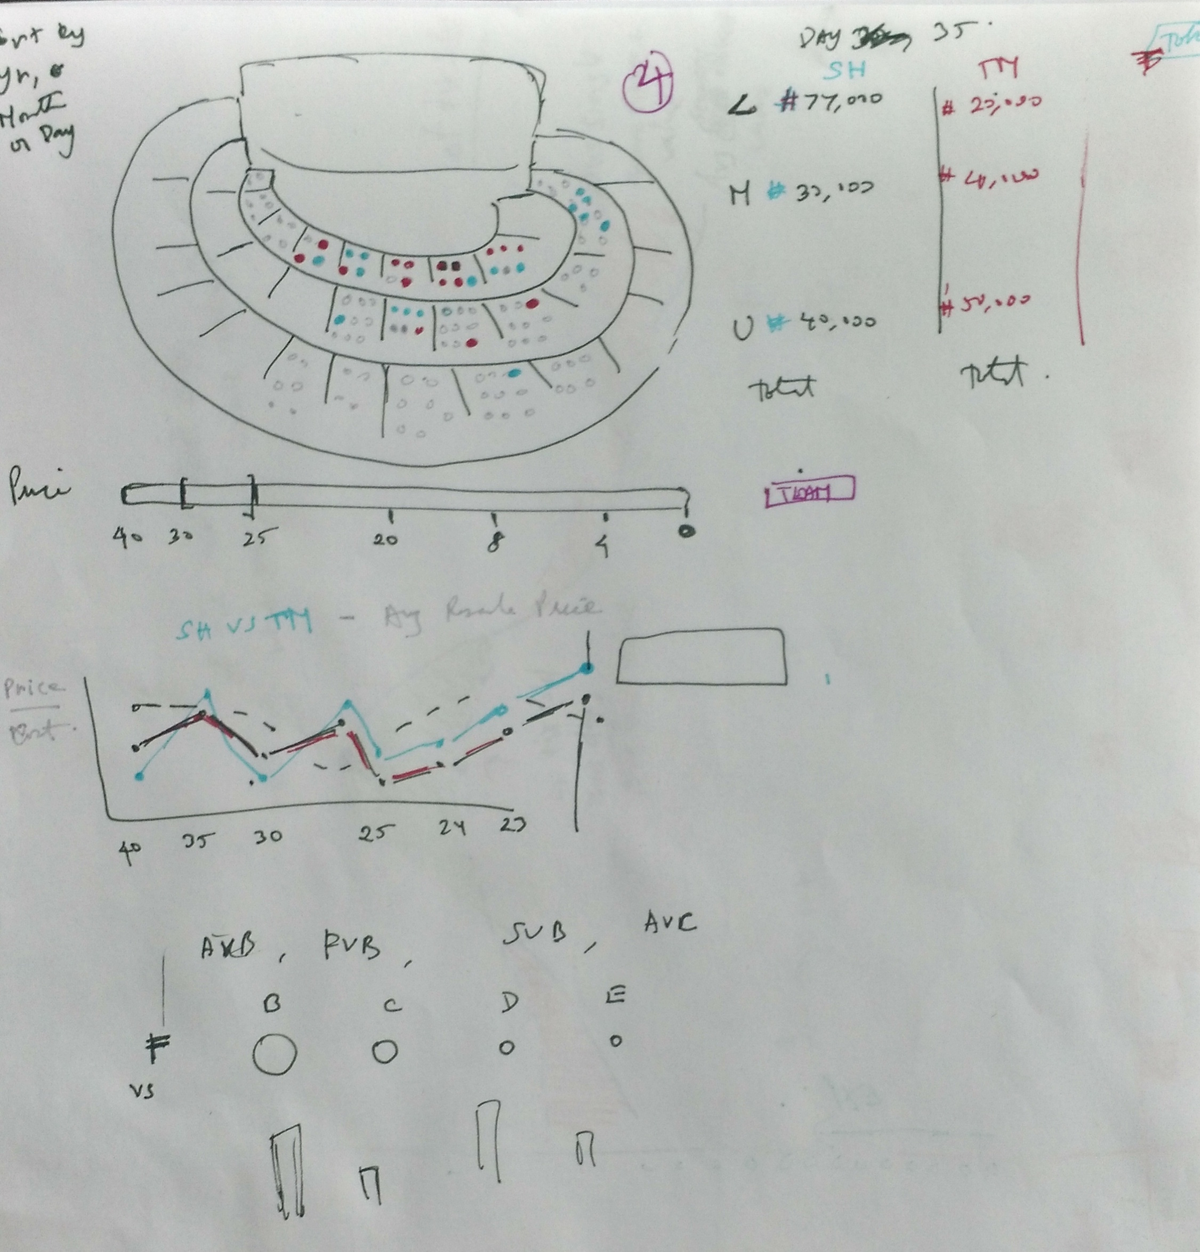 Sort by
Yr,
Month
or Day
4
DAY 35.
SH TM
L #77,000 # 20,000
M # 30,000 # 40,000
U # 40,000 # 50,000
Total Total.
Price
40 30 25 20 8 4 0
TEAM
SH VS TM - Avg Resale Price
Price
40 35 30 25 24 23
AVB, FVB, SVB, AVC
B C D E
F
VS